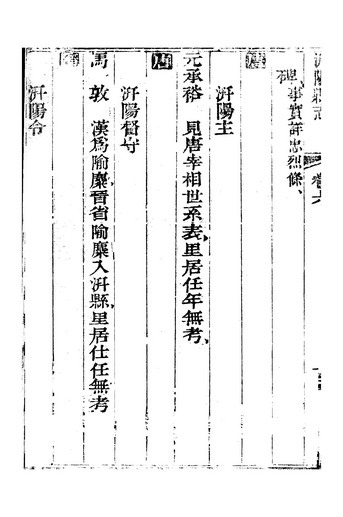 汧陽縣志 卷六
碑事實詳忠烈條
汧陽主
元承裕 見唐宰相世系表里居任年無考
汧陽督守
馬敦 漢為隃麋晉省隃麋入汧縣里居仕任無考
汧陽令